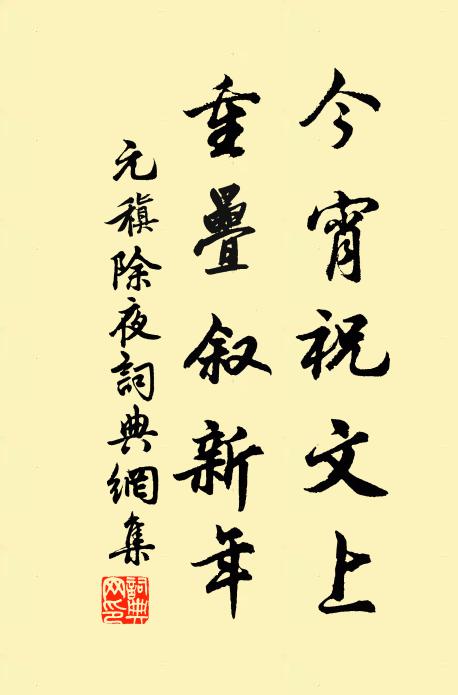 今宵祝文上
重疊叙新年
元稹除夜詞典網集
詞典網印